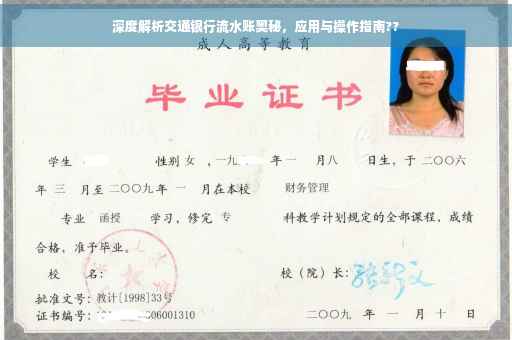 深度解析交通银行流水账奥秘，应用与操作指南??
成人高等教育
毕业证书
学生 性别 女 ，一九 年 一 月 八 日生，于 二〇〇六
年 三 月至 二〇〇九 年 一 月在本校 财务管理
专业 函授 学习，修完 专 科教学计划规定的全部课程，成绩
合格，准予毕业。
校 名： 校（院）长：
批准文号：教计[1998]33号
证书编号： 06001310 二〇〇九 年 一 月 十 日